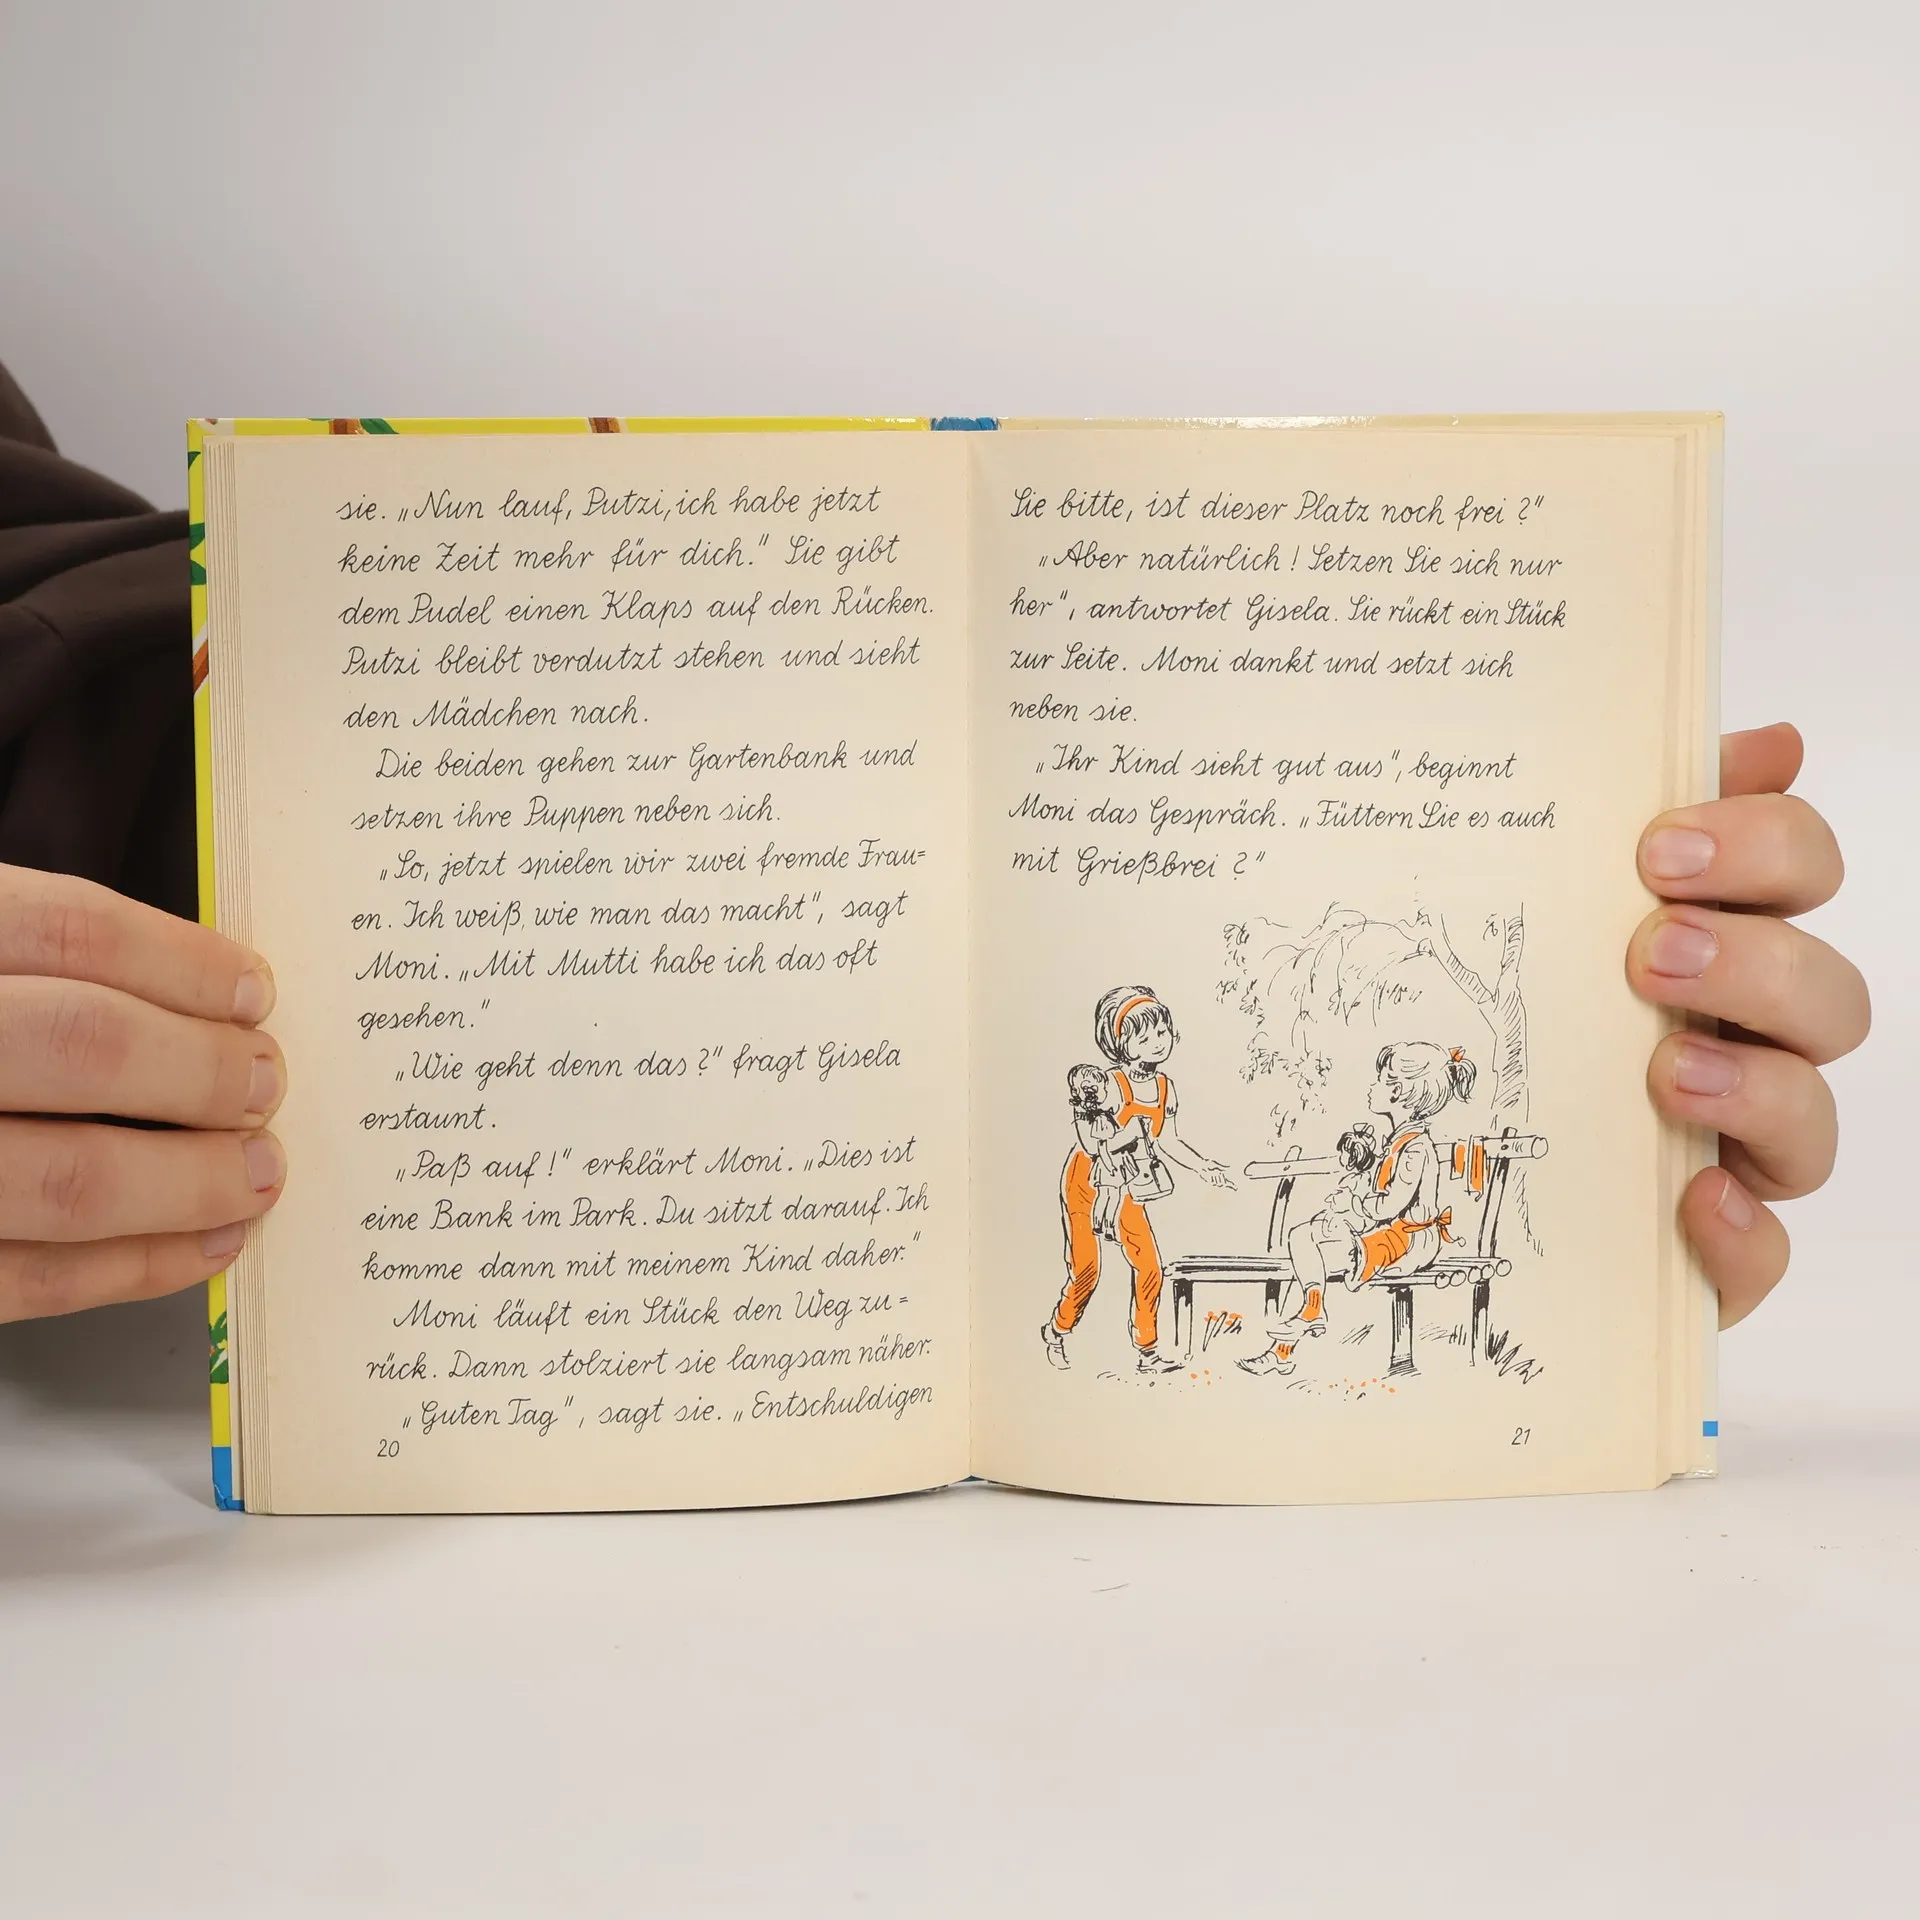 sie. „Nun lauf, Putzi, ich habe jetzt
keine Zeit mehr für dich." Sie gibt
dem Pudel einen Klaps auf den Rücken.
Putzi bleibt verdutzt stehen und sieht
den Mädchen nach.
Die beiden gehen zur Gartenbank und
setzen ihre Puppen neben sich.
„So, jetzt spielen wir zwei fremde Frau=
en. Ich weiß, wie man das macht", sagt
Moni. „Mit Mutti habe ich das oft
gesehen."
„Wie geht denn das?" fragt Gisela
erstaunt.
„Paß auf!" erklärt Moni. „Dies ist
eine Bank im Park. Du sitzt darauf. Ich
komme dann mit meinem Kind daher."
Moni läuft ein Stück den Weg zu=
rück. Dann stolziert sie langsam näher.
„Guten Tag", sagt sie. „Entschuldigen
20
Sie bitte, ist dieser Platz noch frei?"
„Aber natürlich! Setzen Sie sich nur
her", antwortet Gisela. Sie rückt ein Stück
zur Seite. Moni dankt und setzt sich
neben sie.
„Ihr Kind sieht gut aus", beginnt
Moni das Gespräch. „Füttern Sie es auch
mit Grießbrei?"
21